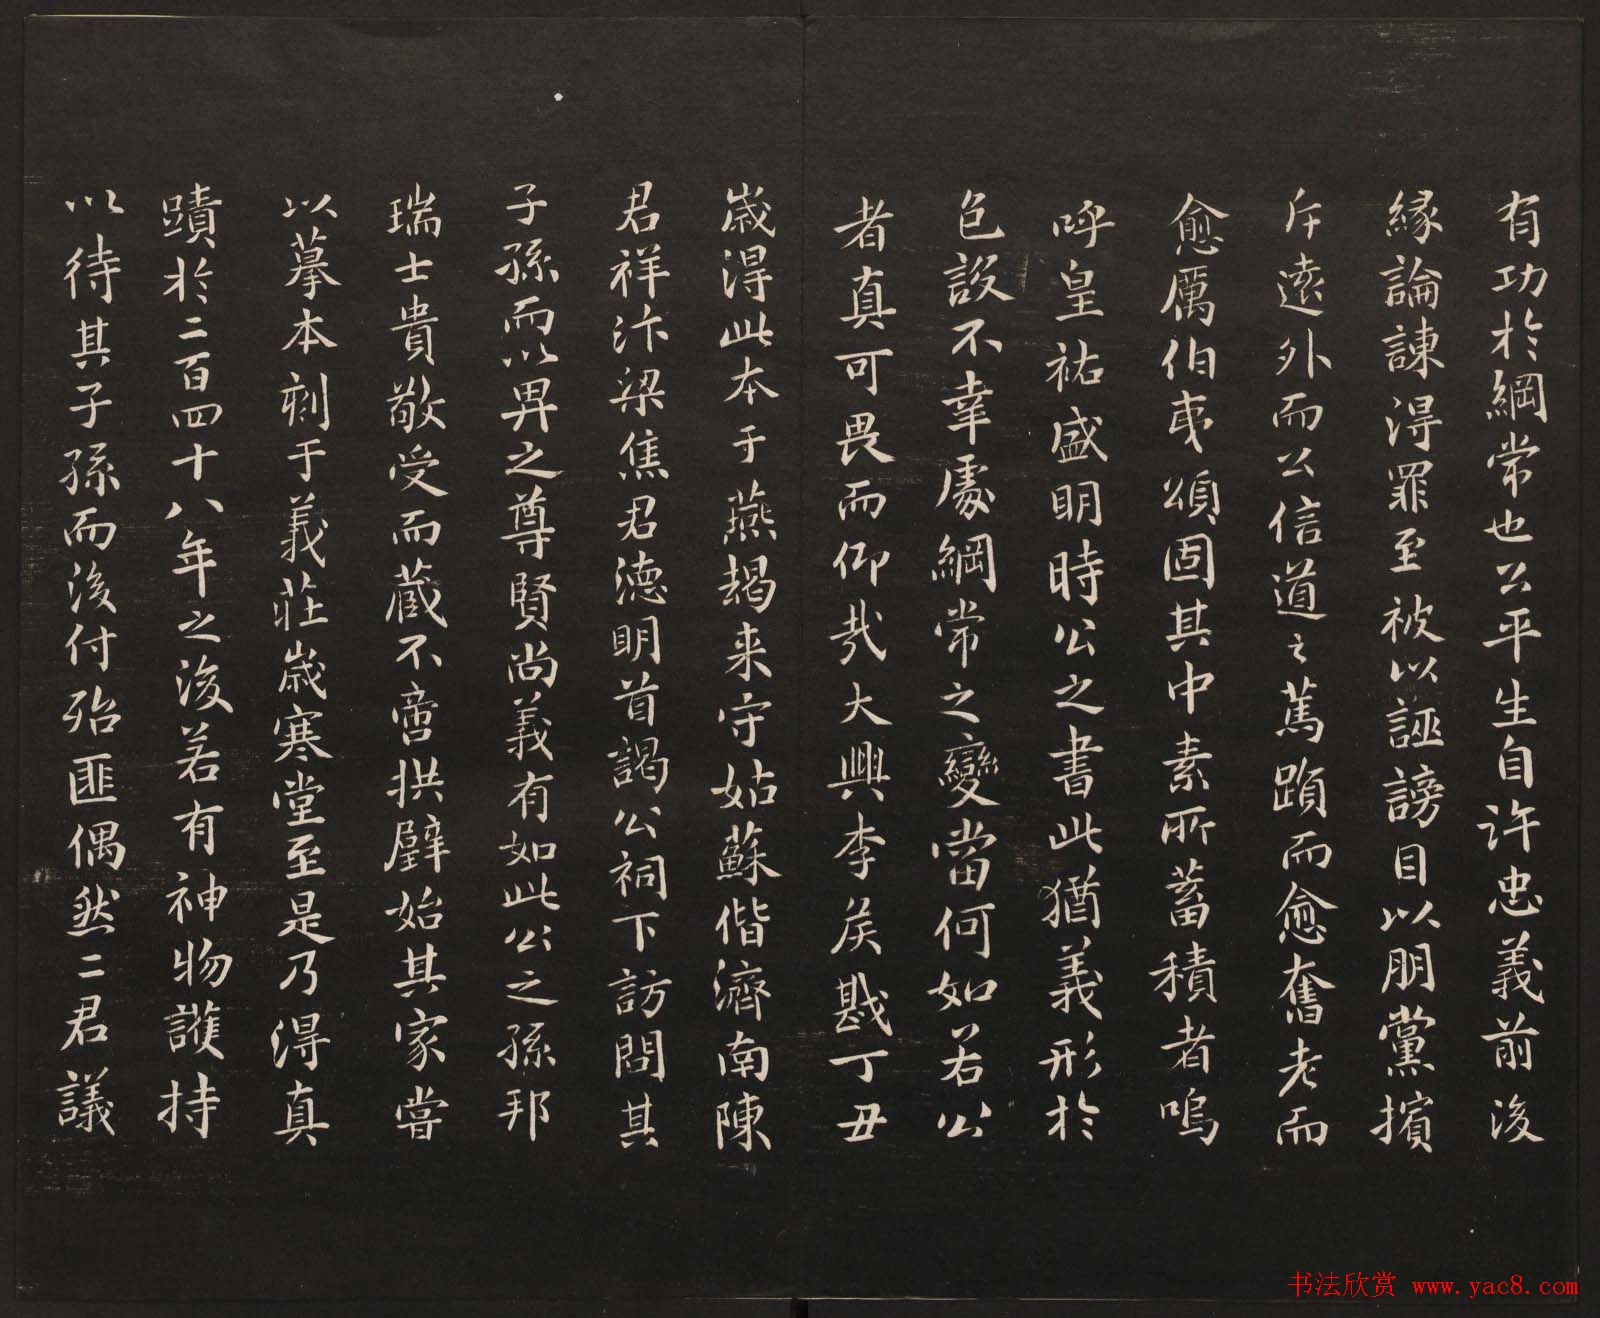 有功於綱常也公平生自許忠義前後
緣論諫得罪至被以誣謗目以朋黨擯
斥遠外而公信道之篤躓而愈奮老而
愈厲伯夷頌固其中素所蓄積者嗚
呼皇祐盛明時公之書此猶義形於
色設不幸處綱常之變當何如若公
者真可畏而仰哉大興李侯戡丁丑
歲得此本于燕朅来守姑蘇偕濟南陳
君祥汴梁焦君德明首謁公祠下訪問其
子孫而以畀之尊賢尚義有如此公之孫邦
瑞士貴敬受而藏不啻拱璧始其家嘗
以摹本刻于義莊歲寒堂至是乃得真
蹟於二百四十八年之後若有神物護持
以待其子孫而後付殆匪偶然二君議
书法欣赏 www.yac8.com